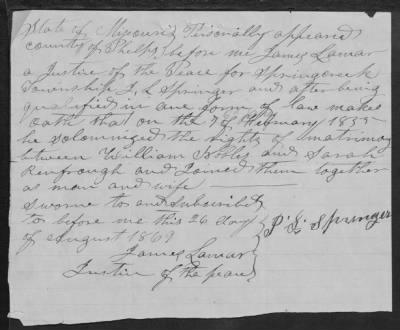 State of Missouri } Personally appeared
County of Phelps } before me James Lamar
a Justice of the Peace for Springcreek
Township J. L Springer and after being
qualified in due form of law makes
oath that on the 7 of February 1855
he solomnized the rights of matrimony
between William and Sarah
Renfrough and Joined them together
as man and wife
Sworne to and Subscribed
to before me this 26 day
of august 1869
P. L. Springer
James Lamar
Justice of the peace